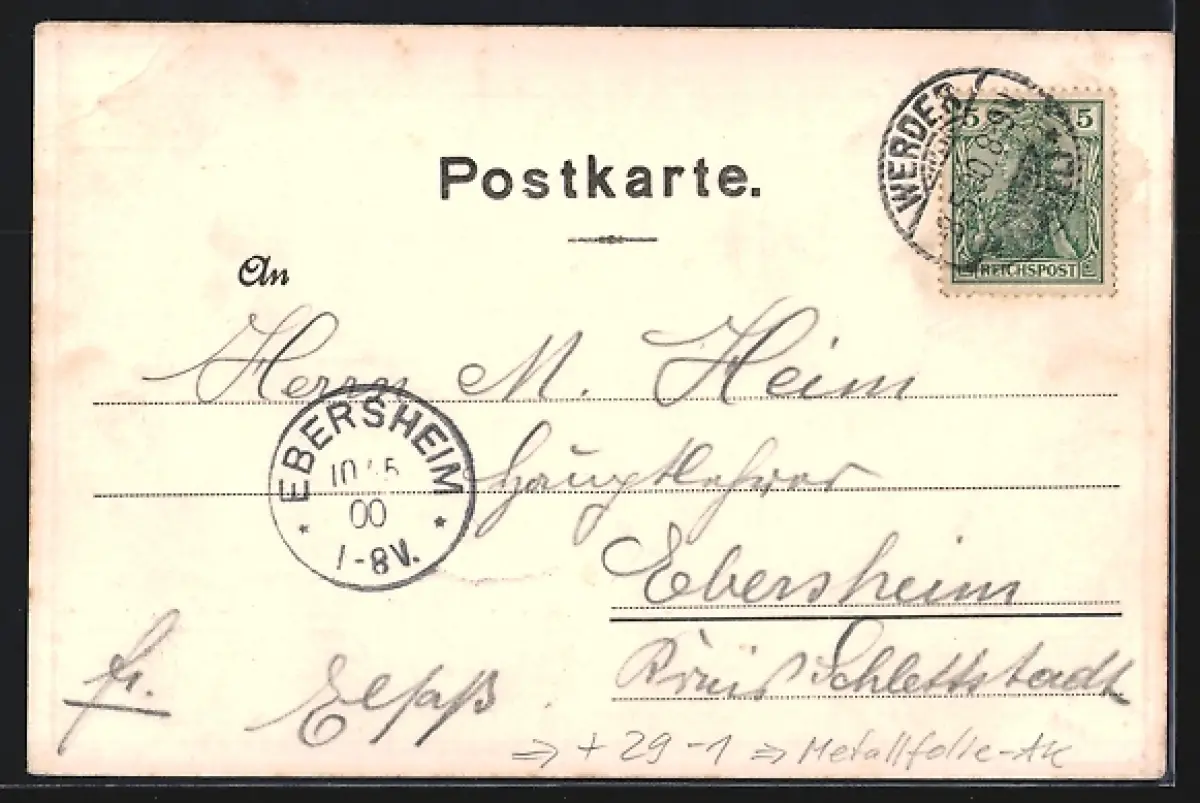 Postkarte.
WERDER
8-9V
5 5
REICHSPOST
An
Herrn M. Heim
EBERSHEIM
10 5
00
1-8V.
Hauptlehrer
Ebersheim
Kreis Schlettstadt
fr.
Elsaß
⇒ + 29-1 ⇒ Metallfolie-AK